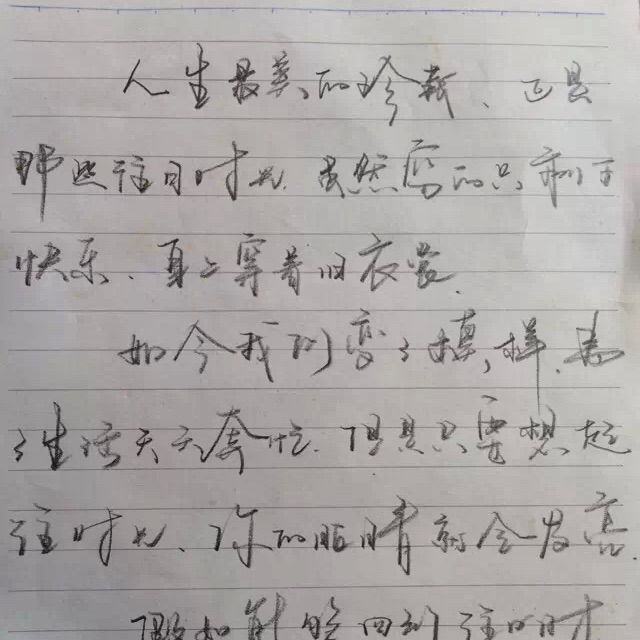 人生最美的珍藏、正是
那些往日时光、虽然穷的只剩下
快乐、身上穿着旧衣裳、
如今我们变了模样、为
了生活天天奔忙、但是只要想起
往时光、你的眼睛就会发亮、
假如能够回到往日时